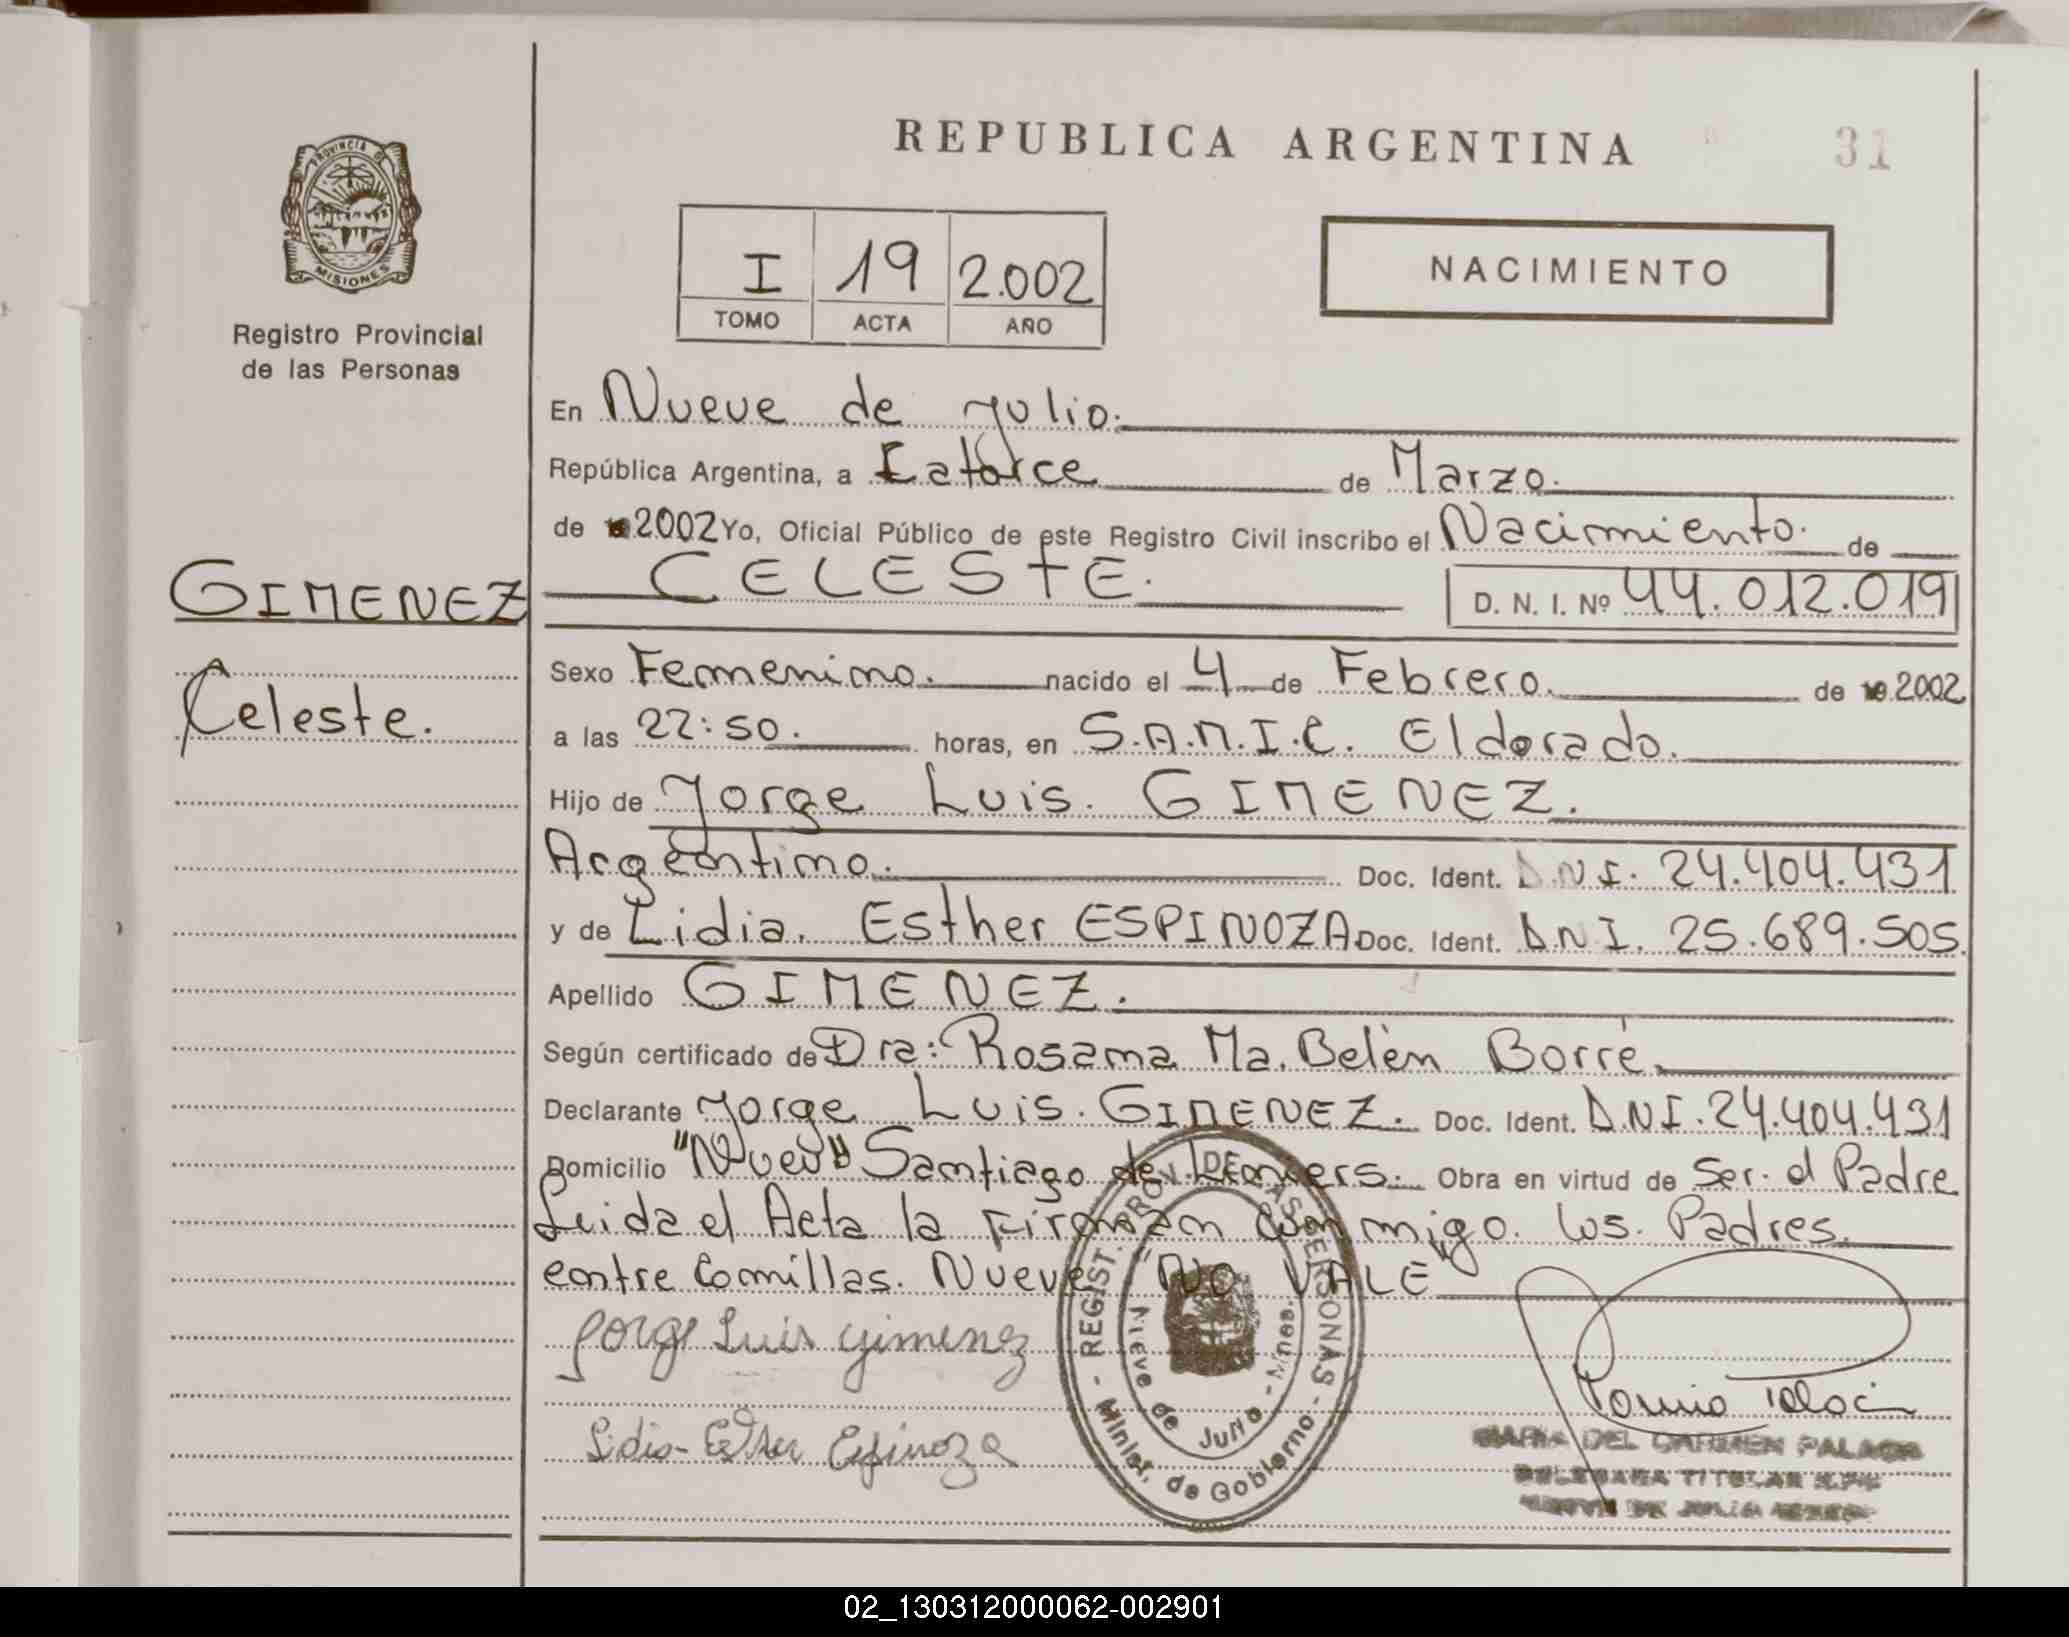 REPUBLICA ARGENTINA
31
PROVINCIA DE
MISIONES
Registro Provincial
de las Personas
I 19 2.002
TOMO ACTA AÑO
NACIMIENTO
En Nueve de Julio.
República Argentina, a Catorce de Marzo.
de 2002 Yo, Oficial Público de este Registro Civil inscribo el Nacimiento. de
CELESTE.
D. N. I. Nº 44.012.019
GIMENEZ
Celeste.
Sexo Femenino. nacido el 4 de Febrero. de 2002
a las 22:50. horas, en S.A.M.I.C. Eldorado.
Hijo de Jorge Luis. GIMENEZ.
Argentino. Doc. Ident. D.N.I. 24.404.431
y de Lidia. Esther ESPINOZA Doc. Ident. D.N.I. 25.689.505.
Apellido GIMENEZ.
Según certificado de Dra: Rosana Ma. Belén Borré.
Declarante Jorge Luis. GIMENEZ. Doc. Ident. D.N.I. 24.404.431
Domicilio "Nuev" Santiago de Liniers. Obra en virtud de Ser. el Padre
Leida el Acta la Firman con migo. los. Padres.
entre Comillas. Nueve "NO VALE"
Jorge Luis Gimenez
Lidia Esther Espinoza
REGIST. PROV. DE LAS PERSONAS - Minist. de Gobierno -
Nueve de Julio - Mnes.
MARIA DEL CARMEN PALACI
DELEGADA TITULAR
NUEVE DE JULIO
02_130312000062-002901